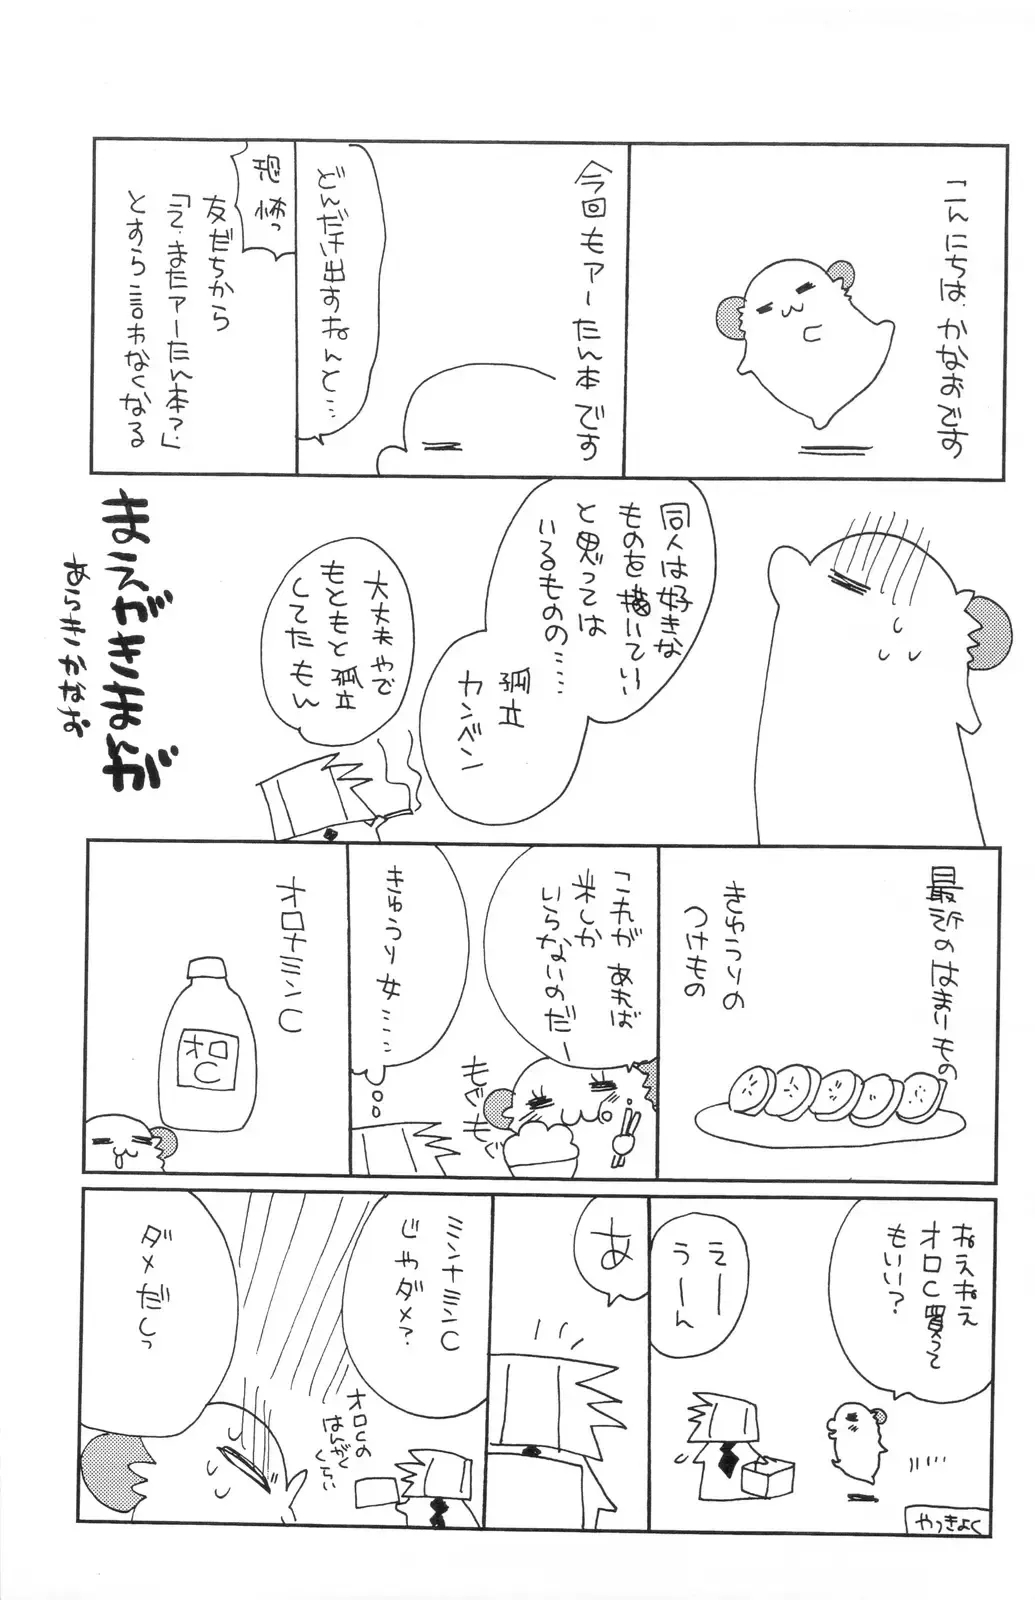 こんにちは、かなおです
今回もアーたん本です
どんだけ出すねんと…
恐怖っ
友だちから
「え、またアーたん本?」
とすら言わなくなる
同人は好きな
ものを描いていい
と思っては
いるものの……
孤立
カンベン
大丈夫やで
もともと孤立
してたもん
まえがきまんが
あらきかなお
最近のはまりもの
きゅうりの
つけもの
「これがあれば
米しか
いらないのだー
もぐもぐ
きゅうり女……
オロナミンC
オロ
C
ねえねえ
オロC買って
もいい?
えー
うーん
やっきょく
あ
ミンナミンC
じゃダメ?
オロCの
はんがく
くらい
ダメだしっ